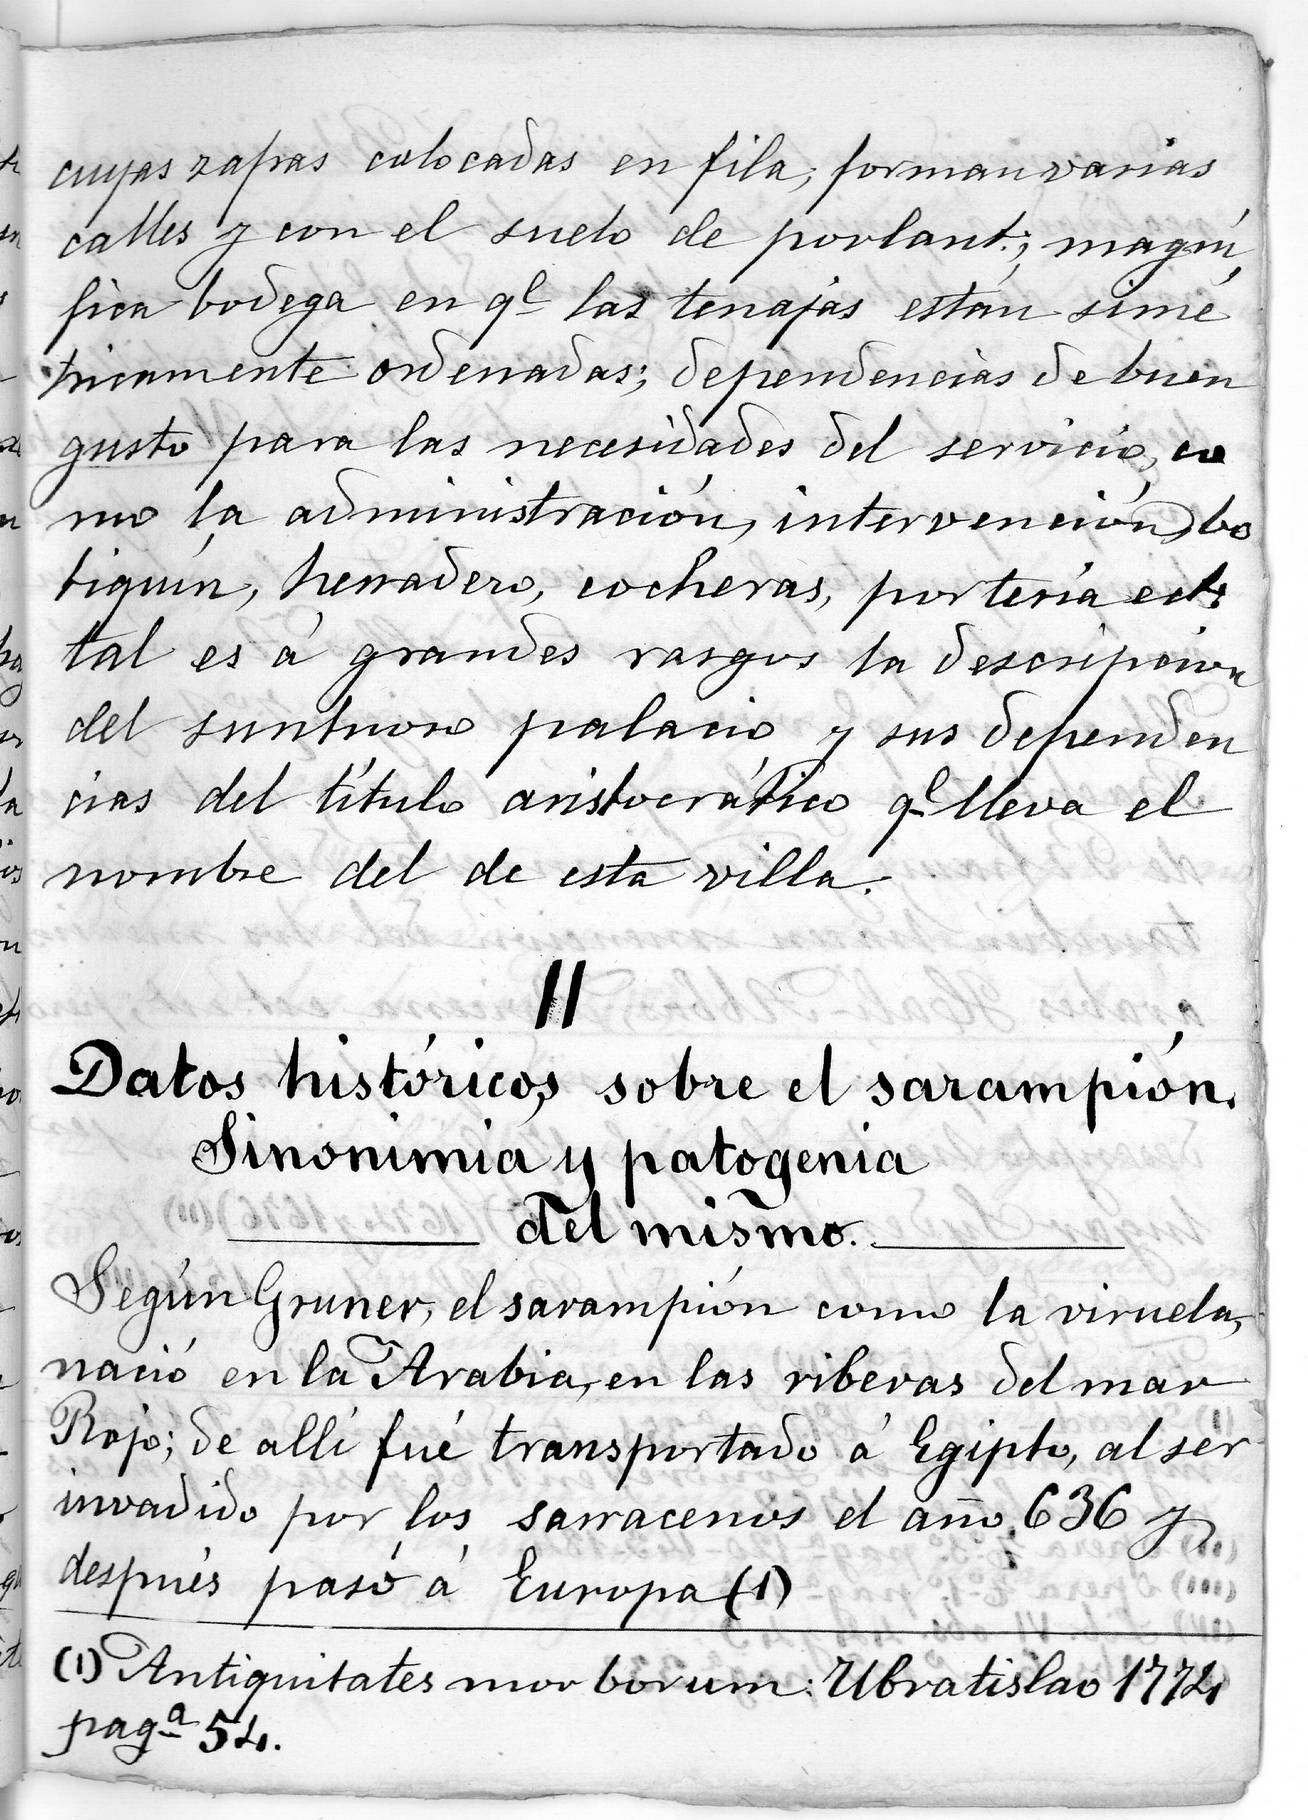 cuyas zafras colocadas en fila, forman varias
calles y con el suelo de porlant.; magní
fica bodega en ql las tenajas están simé
tricamente ordenadas; dependencias de buen
gusto para las necesidades del servicio, co
mo la administración, intervención, bo
tiquín, herradero, cocheras, portería ect;
tal es á grandes rasgos la descripcion
del suntuoso palacio y sus dependen
cias del título aristocrático ql lleva el
nombre del de esta villa.
II
Datos históricos sobre el sarampión.
Sinonimia y patogenia
del mismo.
Según Gruner, el sarampión como la viruela,
nació en la Arabia, en las riberas del mar
Rojo; de allí fué transportado á Egipto, al ser
invadido por los sarracenos el año 636 y
después pasó á Europa (1)
(1) Antiquitates morborum: Ubratislao 1774
pagª 54.